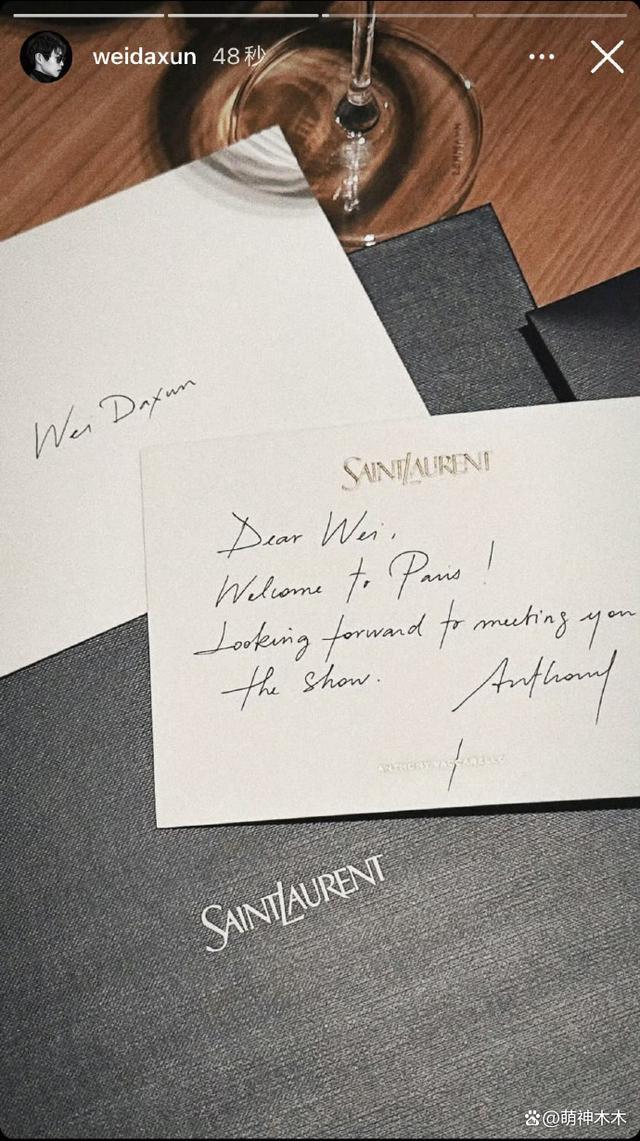 weidaxun 48秒
LEHMANN
Wei Daxun
SAINT LAURENT
Dear Wei,
Welcome to Paris!
Looking forward to meeting you
the show.
Anthony
ANTHONY VACCARELLO
SAINT LAURENT
@萌神木木